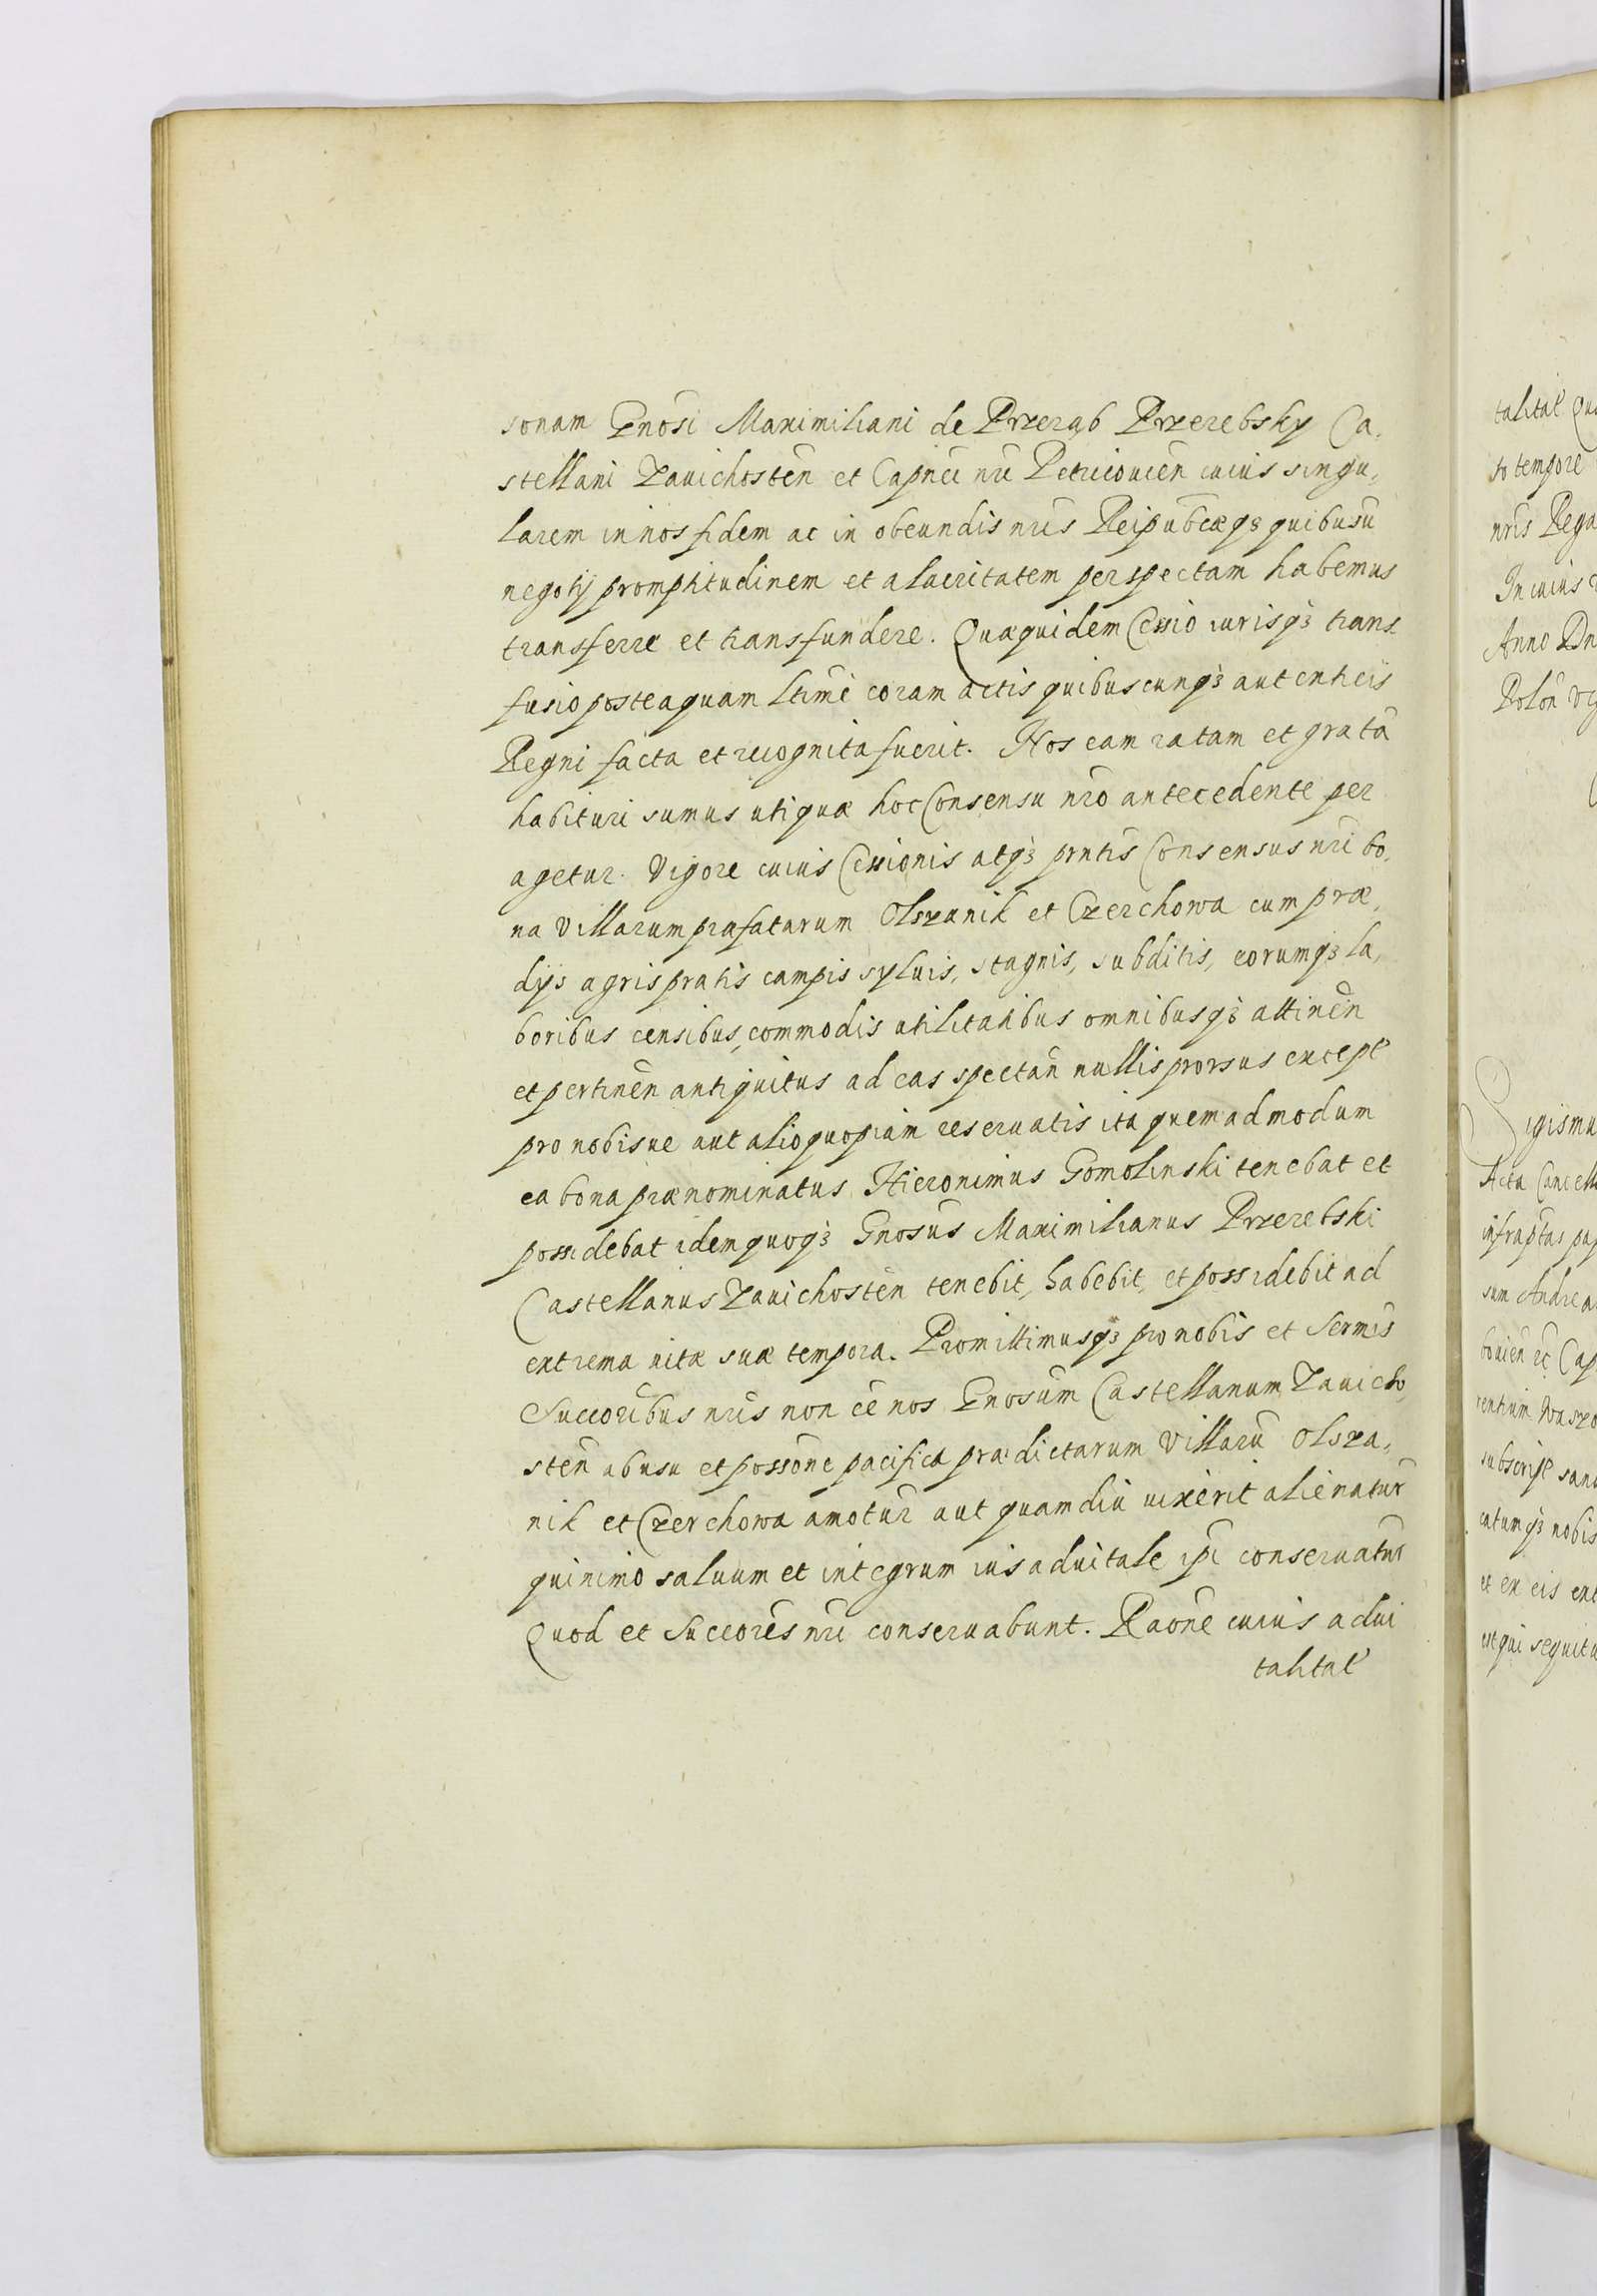 sonam Gnosi Maximiliani de Przerąb Przerebsky Ca,
stellani Zauichosten̄ et Capnei nri Petricouien̄ cuius singu,
larem in nos fidem ac in obeundis nris Reipubcæq3 quibusū
negotij promptitudinem et alacritatem perspectam habemus
transferre et transfundere. Quæquidem Cessio iurisq3 trans
fusio posteaquam ltime coram actis quibuscunq3 autenticis
Regni facta et recognita fuerit. Nos eam ratam et gratā
habituri sumus utiquæ hoc Consensu nro antecedente per
agetur. Vigore cuius Cessionis atq3 prntis Consensus nri bo,
na Villarum præfatarum Olszanik et Czerchowa cum præ,
dijs agris pratis campis syluis, stagnis, subditis, eorumq3 la,
boribus censibus, commodis utilitatibus omnibusq3 attinen̄
et pertinen̄ antiquitus ad eas spectan̄ nullis prorsus except
pro nobisue aut alio quopiam reseruatis ita quemadmodum
ea bona prænominatus Hieronimus Gomolinski tenebat et
possidebat idem quoq3 Gnosus Maximilianus Przerebski
Castellanus Zauichosten̄ tenebit, habebit, et possidebit ad
extrema uitæ suæ tempora. Promittimusq3 pro nobis et Sermis
Succoribus nris non ee nos Gnosum Castellanum Zauicho,
sten̄ ab usu et possone pacifica prædictarum Villarū Olsza,
nik et Czerchowa amotur̄ aut quamdiu uixerit alienatur̄
quinimo saluum et integrum ius aduitale ipi conseruatur̄
Quod et Succores nri conseruabunt. Raone cuius adui
talitat
talitat
to tempore
nris
In cuius
Anno Dn
Polon̄
Sigismu
Acta Cancell
infraptas
sum Andrea
bouien̄
subscript
catumq3 nobis
et ex eis ext
est qui sequit